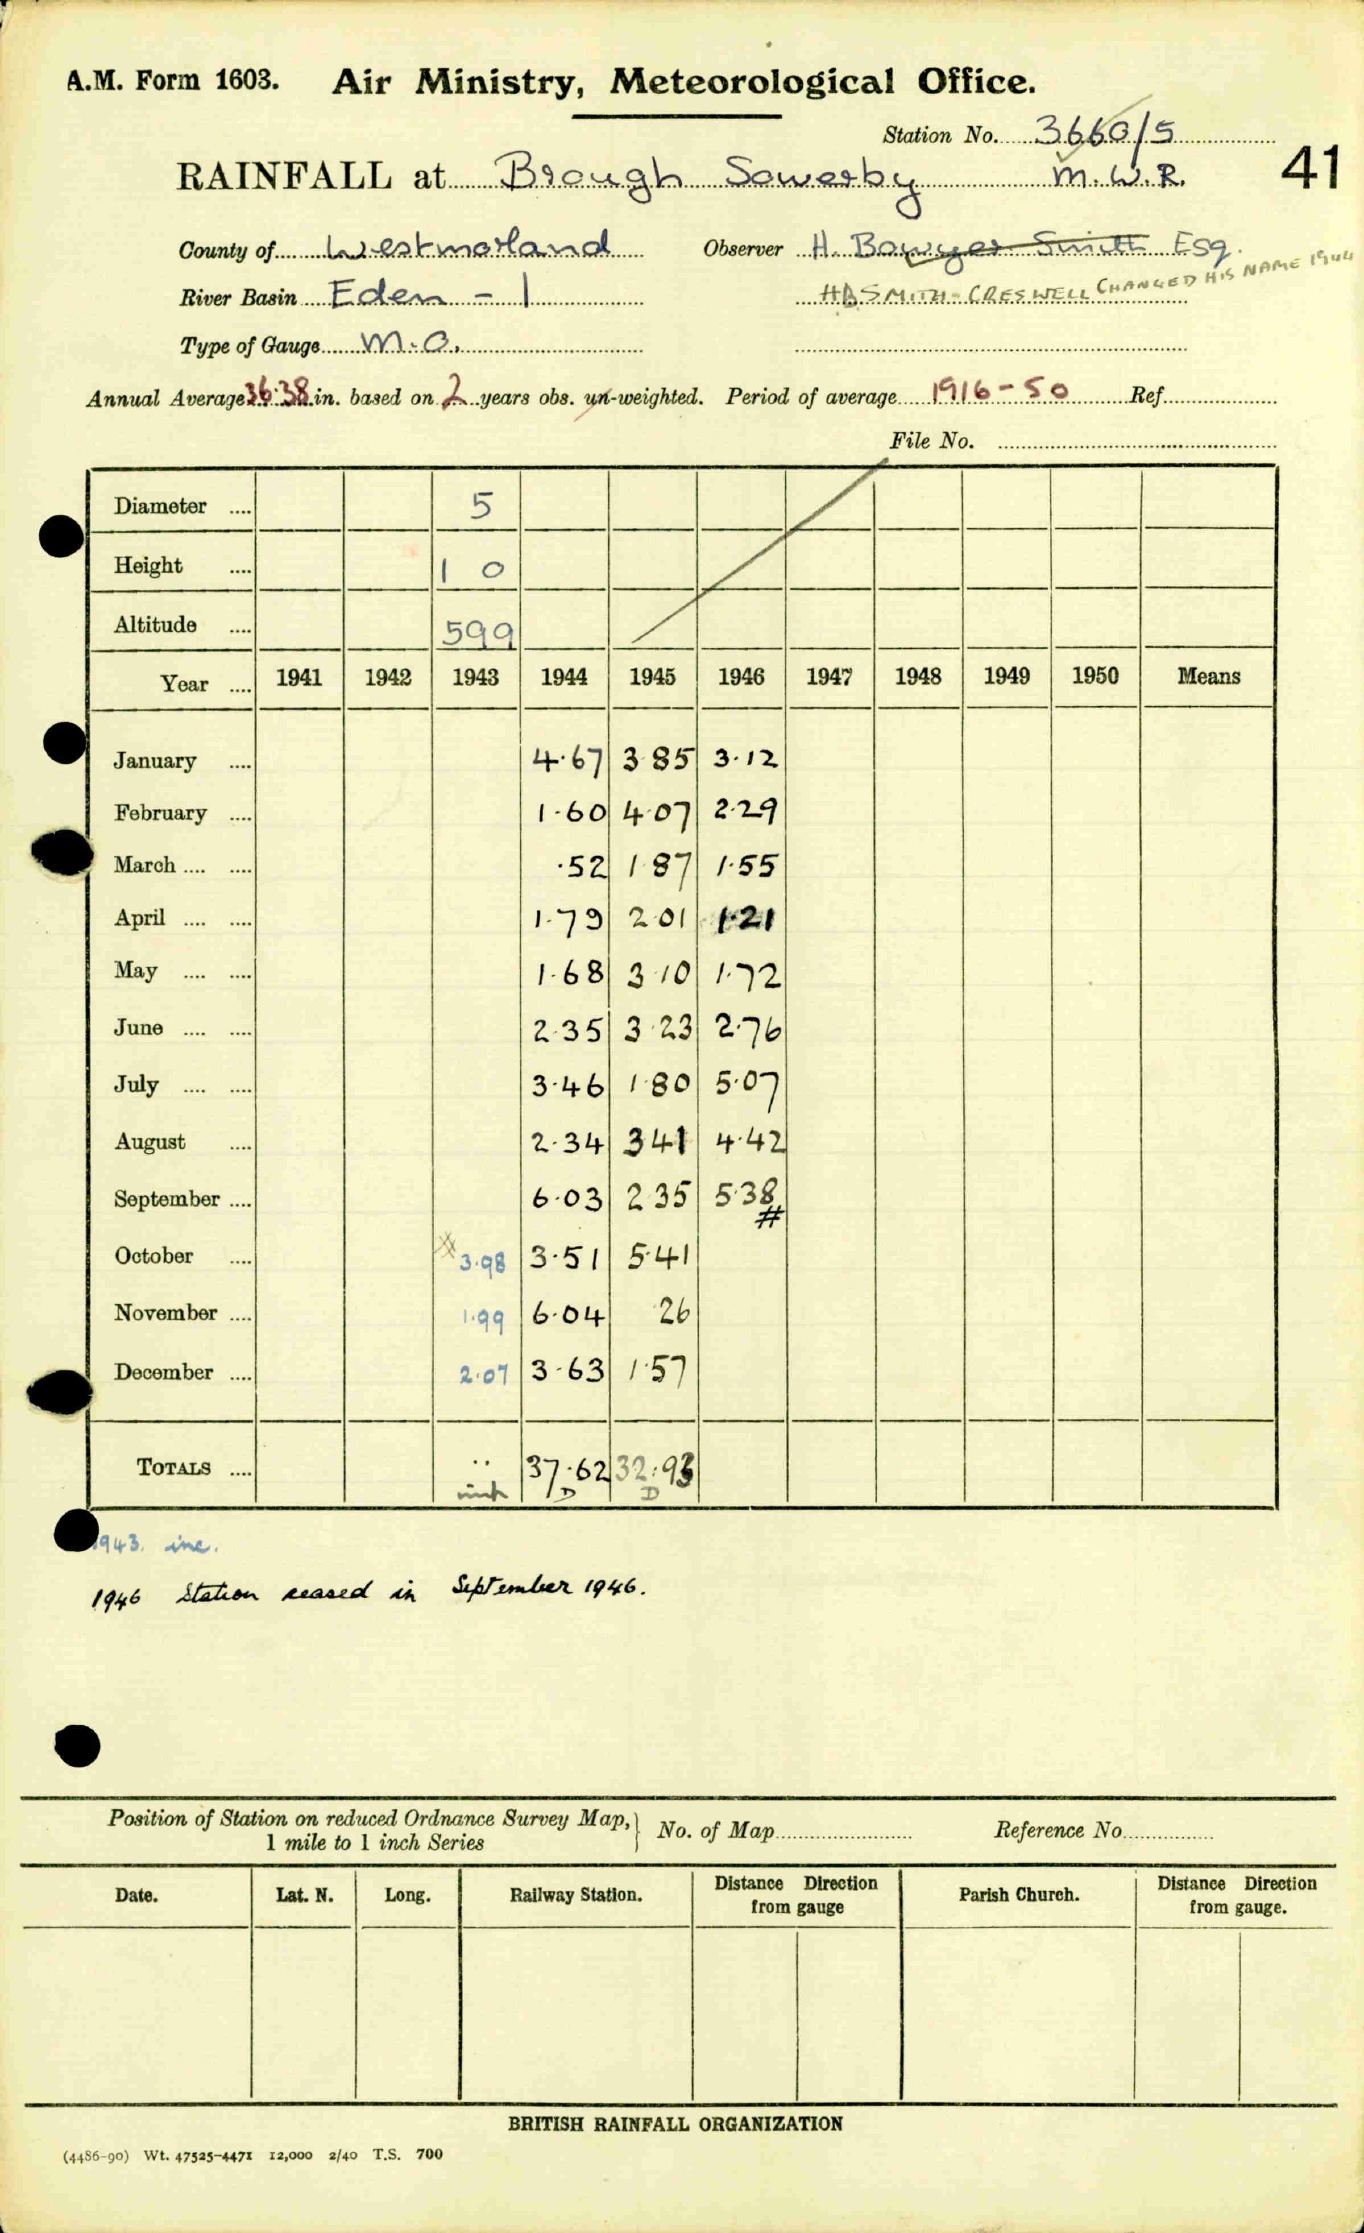 A.M. Form 1603. Air Ministry, Meteorological Office.
Station No. 3660/5
41
RAINFALL at Brough Sowerby M.W.R.
County of Westmorland Observer H. Bowyer Smith Esq.
River Basin Eden - 1 H.B SMITH-CRESWELL CHANGED HIS NAME 1944
Type of Gauge M.O.
Annual Average 36.38 in. based on 2 years obs. un-weighted. Period of average 1916-50 Ref.
File No.
Diameter .... 5
Height .... 1 0
Altitude .... 599
Year .... 1941 1942 1943 1944 1945 1946 1947 1948 1949 1950 Means
January .... 4.67 3.85 3.12
February .... 1.60 4.07 2.29
March .... .... .52 1.87 1.55
April .... .... 1.79 2.01 1.21
May .... .... 1.68 3.10 1.72
June .... .... 2.35 3.23 2.76
July .... .... 3.46 1.80 5.07
August .... 2.34 3.41 4.42
September .... 6.03 2.35 5.38 #
October .... 3.98 3.51 5.41
November .... 1.99 6.04 .26
December .... 2.07 3.63 1.57
TOTALS .... .. 37.62 32.93
D D
1943. inc.
1946 Station ceased in September 1946.
Position of Station on reduced Ordnance Survey Map, 1 mile to 1 inch Series } No. of Map Reference No.
Date. Lat. N. Long. Railway Station. Distance Direction from gauge Parish Church. Distance Direction from gauge.
BRITISH RAINFALL ORGANIZATION
(4486-90) Wt. 47525-4471 12,000 2/40 T.S. 700